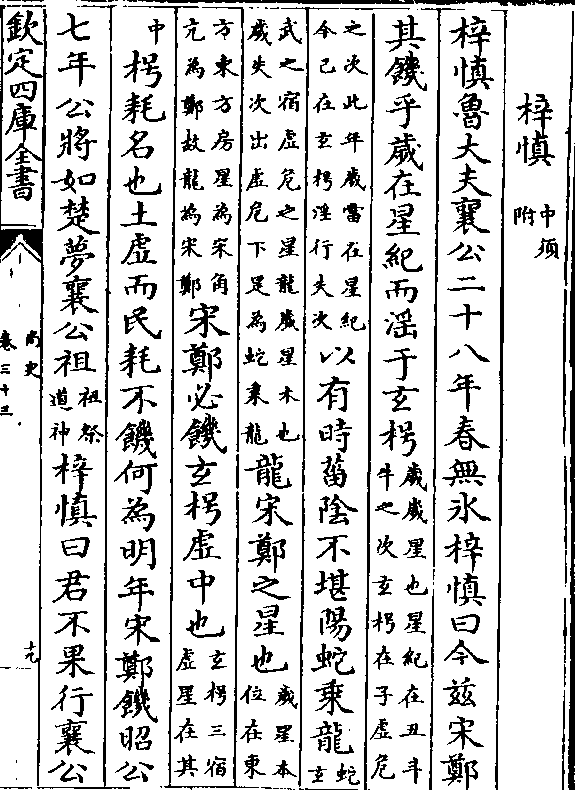 梓慎申須附
梓慎魯大夫襄公二十八年春無氷梓慎曰今兹宋鄭
其饑乎歳在星紀而滛于玄枵歳歳星也星紀在丑斗牛之次玄枵在子虚危
之次此年歳當在星紀今已在玄枵淫行失次以有時菑陰不堪陽蛇乘龍蛇玄
武之宿虚危之星龍歳星木也歳失次出虚危下是為蛇乘龍龍宋鄭之星也歳星本位在東
方東方房星為宋角亢為鄭故龍為宋鄭宋鄭必饑玄枵虚中也玄枵三宿虚星在其
中枵耗名也土虚而民耗不饑何為明年宋鄭饑昭公
七年公將如楚夢襄公祖祖祭道神梓慎曰君不果行襄公
欽定四庫全書
尚史
卷三十三
十九